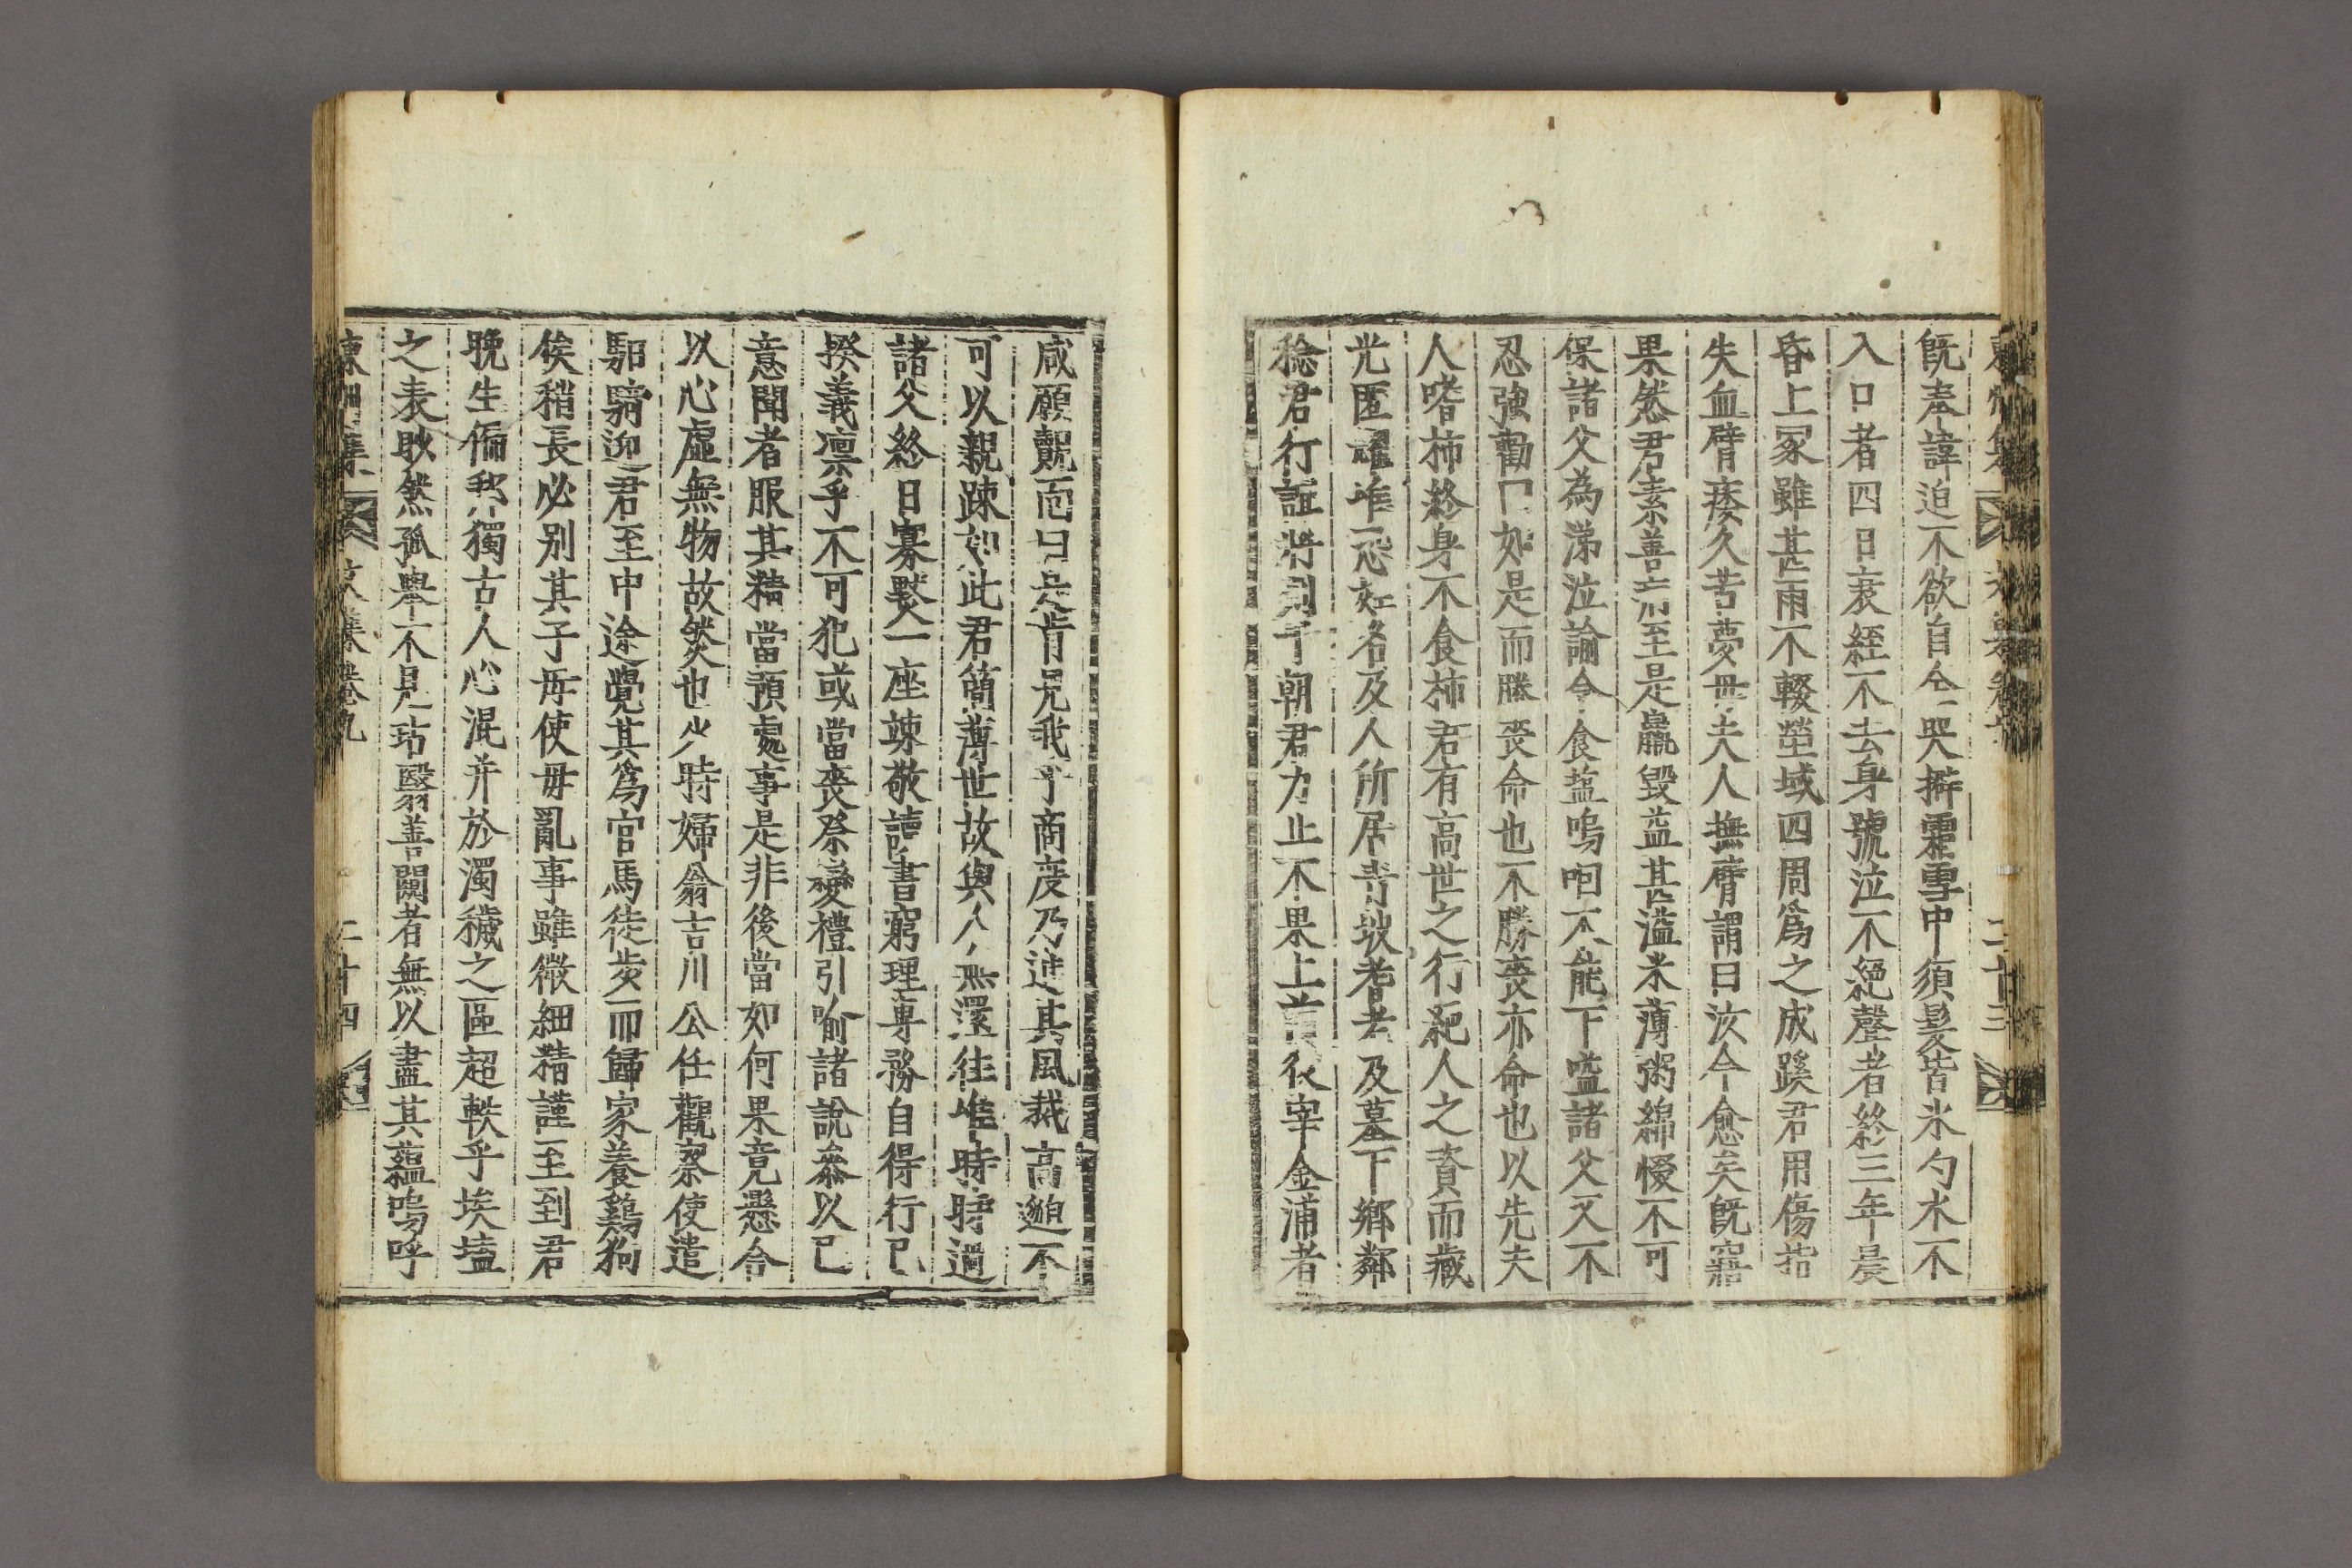 旣奉諱迫不欲自全哭擗霜雪中須髮皆氷勺水不
入口者四日衰絰不去身號泣不絕聲者終三年晨
昏上冢雖甚雨不輟塋域四周爲之成蹊君用傷指
失血臂痿久苦夢母夫人撫臂謂曰汝今愈矣旣寤
果然君素善至是羸毀益甚溢米薄粥綿惙不可
保諸父為涕泣諭令食䀋嗚咽不能下嗌諸父又不
忍強勸曰如是而勝喪命也不勝喪亦命也以先夫
人嗜柿終身不食柿君有高世之行絕人之資而藏
光匿耀唯恐知名及人所居靑坡耆老及墓下鄕鄰
稔君行誼將列于朝君力止不果上前後宰金浦者
咸願覿面曰是肯見我乎商度乃造其風裁高邈不
可以親踈如此君簡薄世故與人無還往唯時時過
諸父終日寡默一座竦敬讀書窮理專務自得行己
揆義凛乎不可犯或當喪祭變禮引喻諸說叅以己
意聞者服其精當預處事是非後當如何果竟懸合
以心虛無物故燃也少時婦翁吉川公任觀察使遣
馹騎迎君至中途覺其爲官馬徒步而歸家養鷄狗
俟稍長必別其子母使毋亂事雖微細精謹至到君
晩生偏邦獨古人心混并於濁穢之區超軼乎埃壒
之表耿然孤擧不見玷翳善闡者無以盡其蘊嗚呼
集 文集卷九 二十四